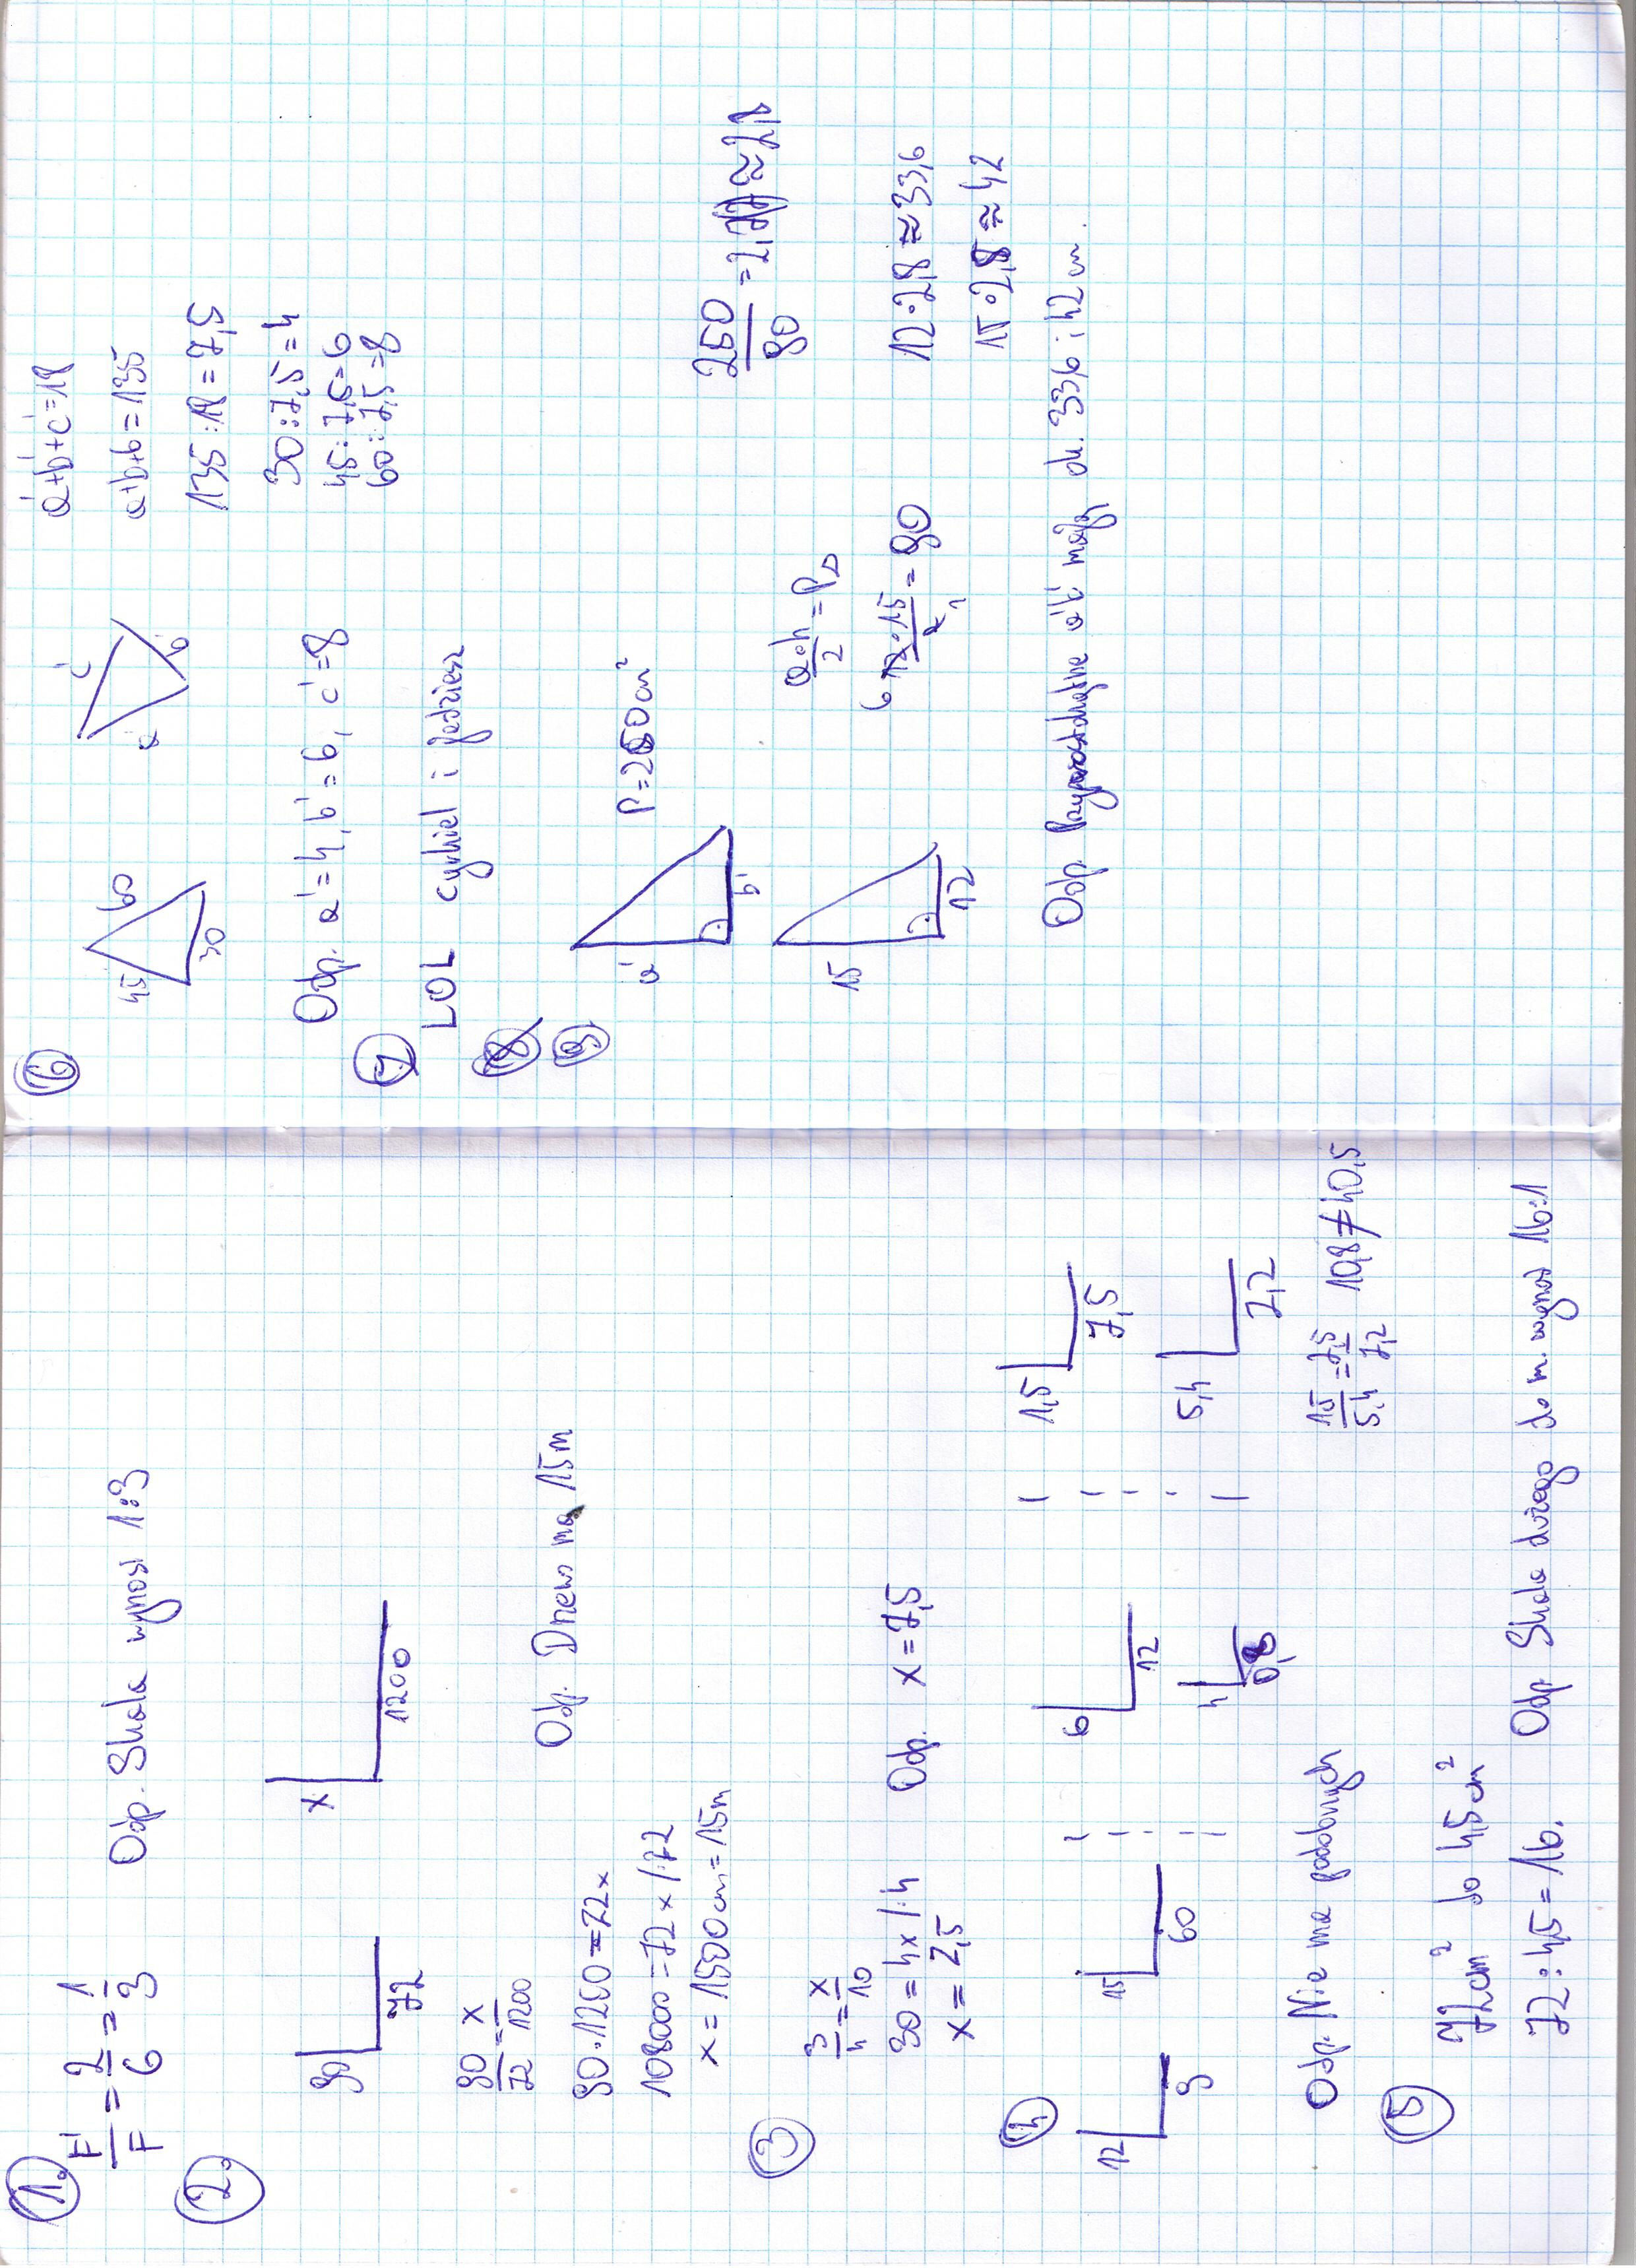 1.
F'/F = 2/6 = 1/3
Odp. Skala wynosi 1:3
2.
90
72
x
1200
90/72 = x/1200
90·1200=72x
108000=72x/:72
x=1500cm=15m
Odp. Drzewo ma 15m
3
3/4 = x/10
30=4x/:4
x=7,5
Odp. x=7,5
4
12
9
15
60
6
12
4
0,8
1,5
7,5
5,4
7,2
1,5/5,4 = 7,5/7,2
10,8≠40,5
Odp. Nie ma podobnych
5
72cm² do 4,5cm²
72:4,5=16.
Odp Skala dużego do m. wynosi 16:1
6
45
60
30
a'
c'
b'
a'+b'+c'=18
a+b+b=135
135:18=7,5
30:7,5=4
45:7,5=6
60:7,5=8
Odp. a'=4, b'=6, c'=8
7
LOL cyrkiel i jedziesz
8
9
a'
b'
P=250cm²
15
12
a·h/2 = P△
6 12·15/2 1 = 90
250/90 = 2,7 ≈
12·2,8≈33,6
15·2,8≈42
Odp Przyprostokątne a' b' mają ok. 33,6 i 42cm.